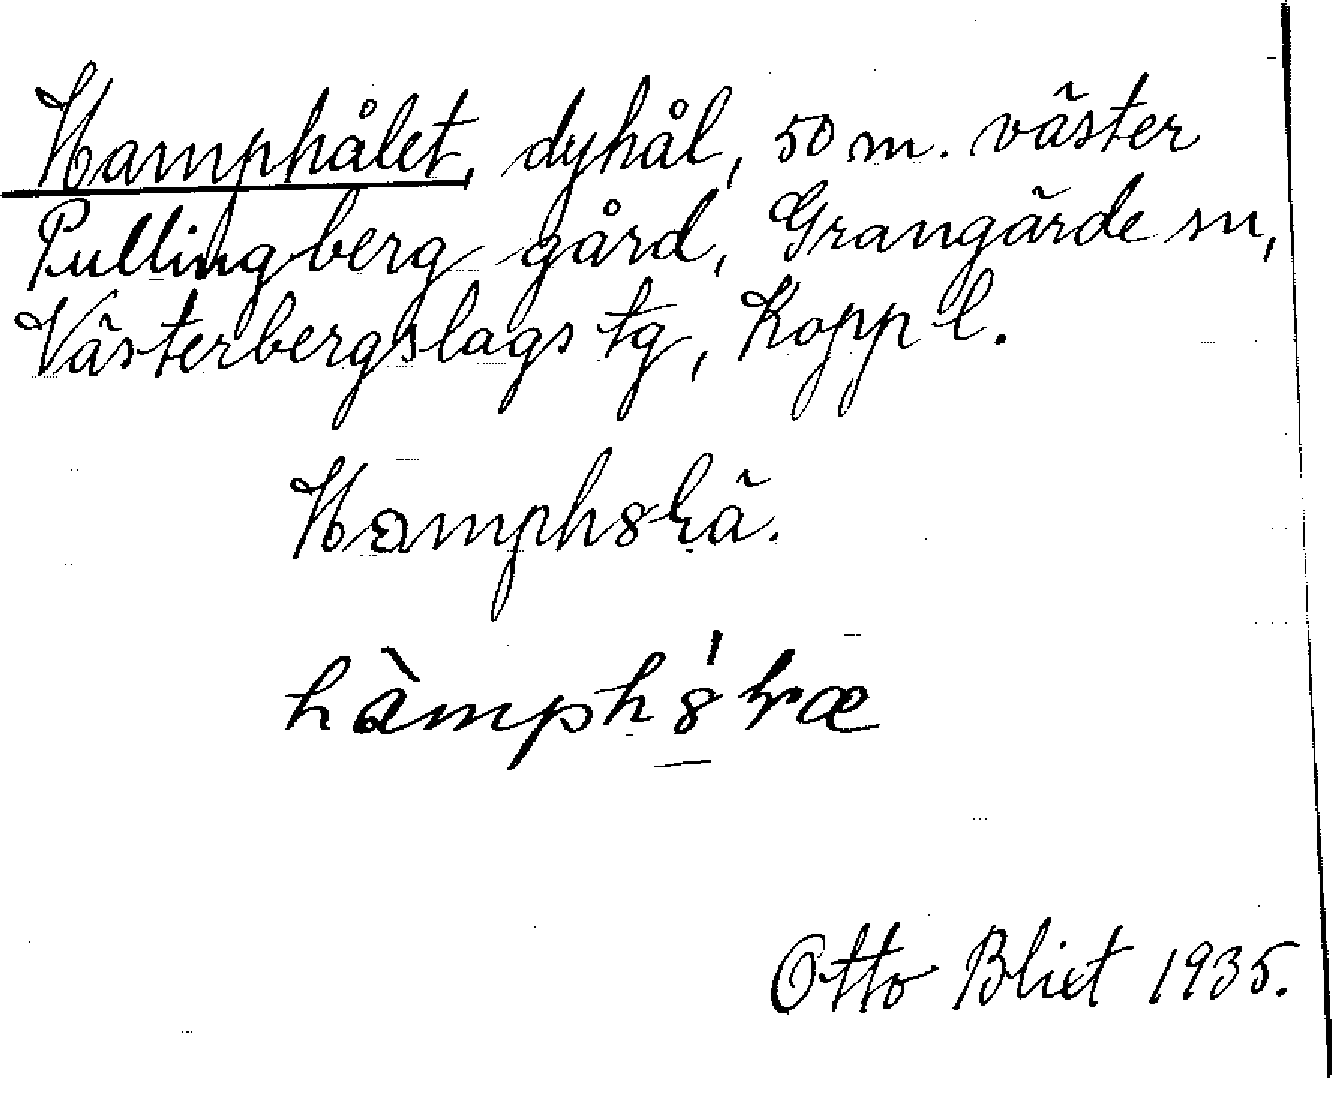 Hamphålet, dyhål, 50 m. väster
Pullingberg gård, Grangärde sn,
Västerbergslags tg, Kopp l.
Otto Blixt 1935.